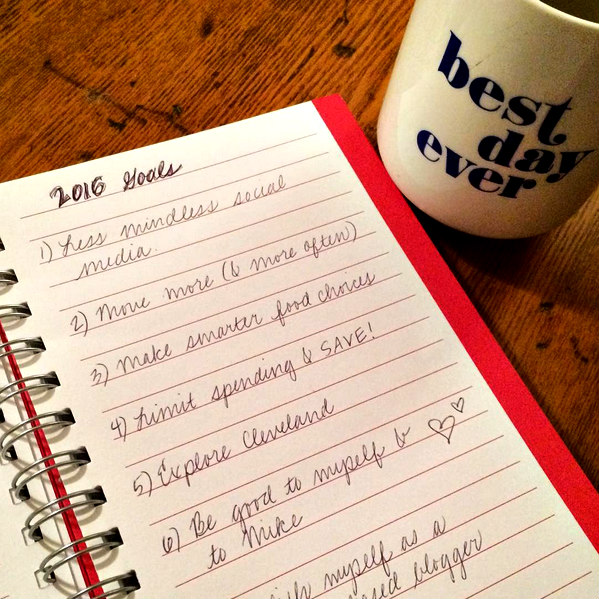 2016 Goals
1) Less mindless social
media.
2) Move more (& more often)
3) Make smarter food choices
4) Limit spending & SAVE!
5) Explore Cleveland
6) Be good to myself &
to Mike
myself as a
blogger
best
day
ever